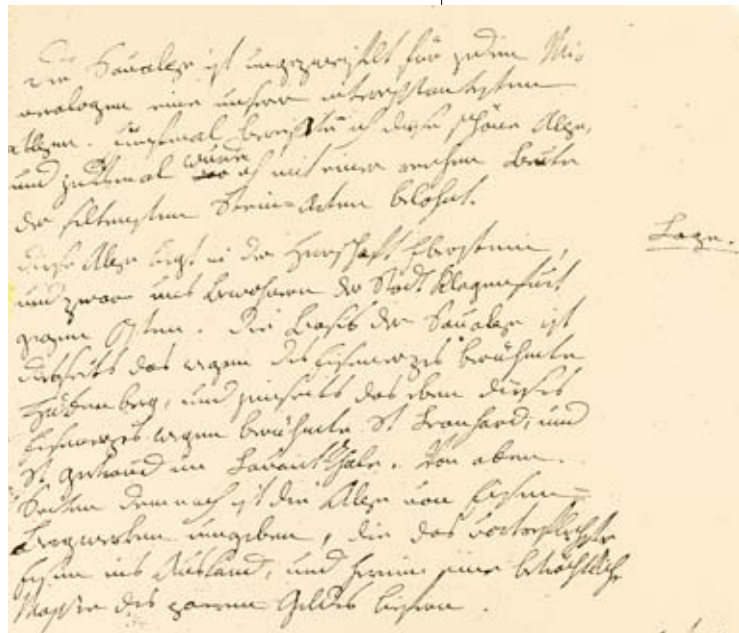 Die Saualpe ist ungezweifelt für jeden Mi-
neralogen eine unserer interessantesten
Alpen. bereißte ich diese schöne Alpe,
und jedesmal wurde ich mit einer reichen Beute
der seltensten Stein-Arten belohnt.
Lage.
diese Alpe liegt in der Herrschaft Eberstein,
und zwar uns Bewohnern der Stadt Klagenfurt
gegen Osten. Die Basis der Saualpe ist
disseits das wegen des Eisenerzes berühmte
Hüttenberg, und jenseits das eben dieses
Eisenerzes wegen berühmte St Leonhard, und
St Gertraud im Lavantthale. Von
Seiten demnach ist die Alpe von Eisen=
Bergwerken umgeben, die das vortreflichste
Eisen ins Ausland, und herein eine beträchtliche
Masse des Geldes liefern.